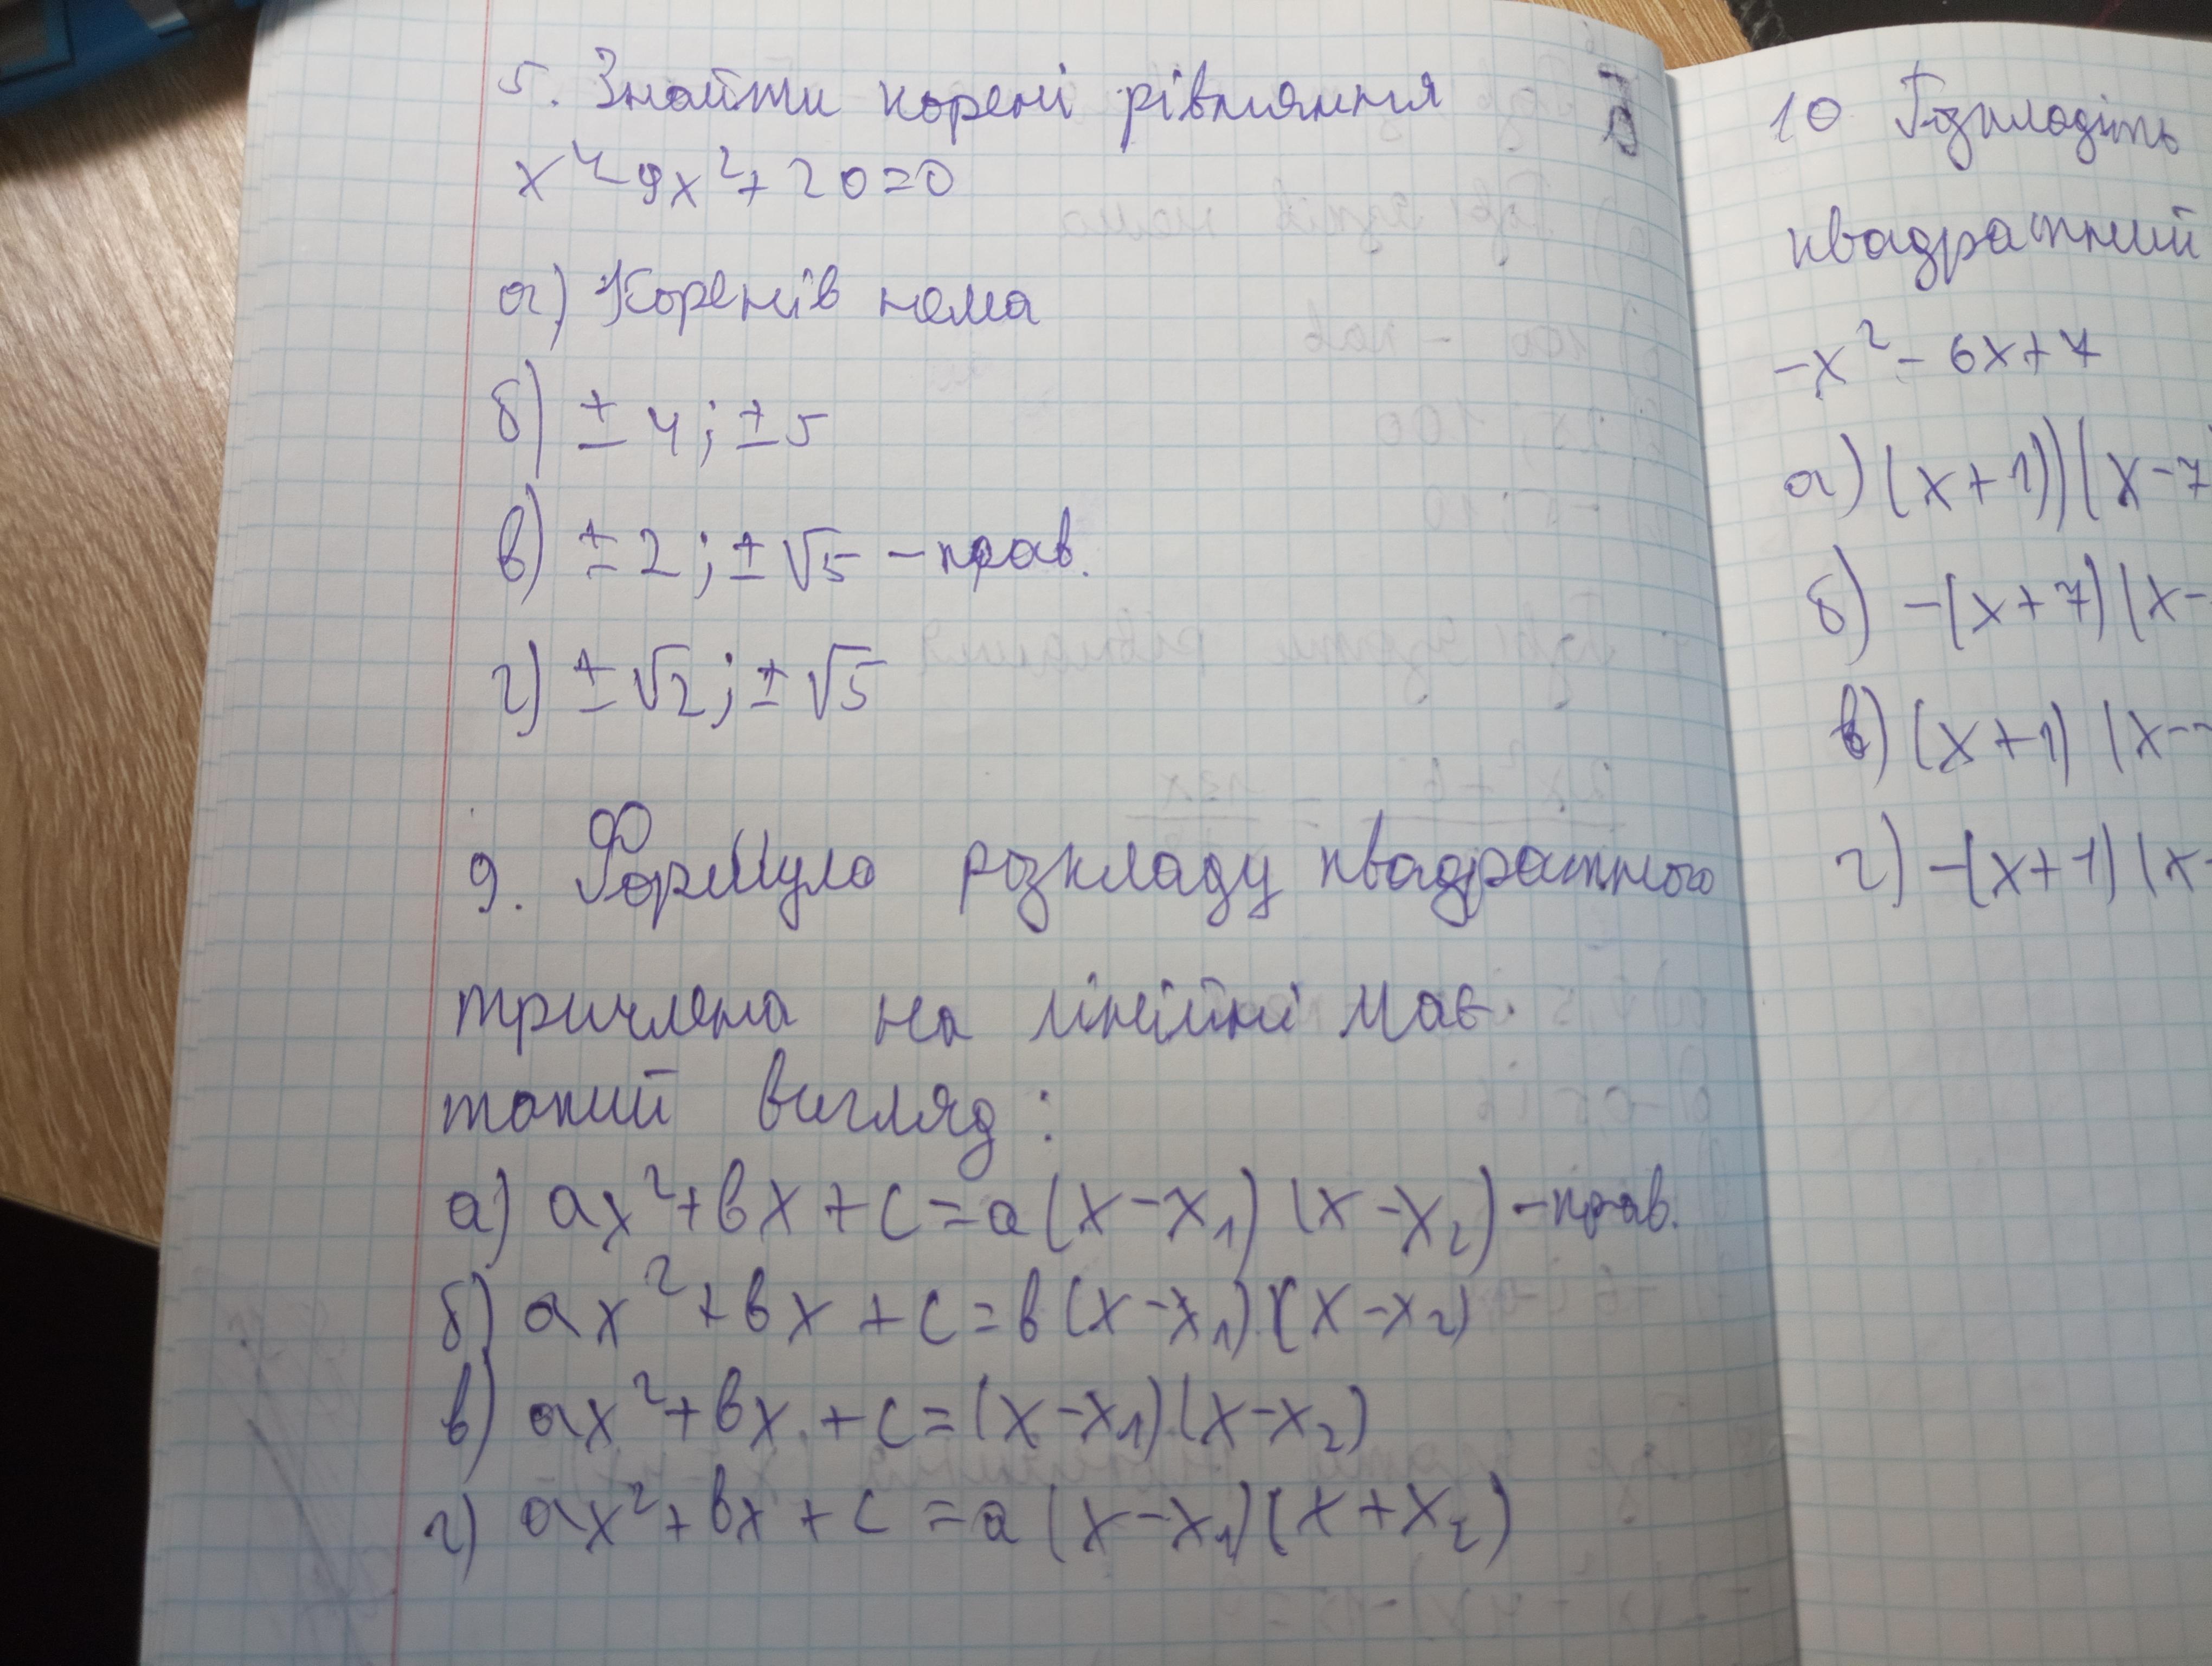 5. Знайти корені рівняння
x⁴-9x²+20=0
а) Коренів нема
б) ±4; ±5
в) ±2; ±√5 – прав.
г) ±√2; ±√5
9. Формула розкладу квадратного
тричлена на лінійні має
такий вигляд:
а) ax²+bx+c=a(x-x₁)(x-x₂) – прав.
б) ax²+bx+c=b(x-x₁)(x-x₂)
в) ax²+bx+c=(x-x₁)(x-x₂)
г) ax²+bx+c=a(x-x₁)(x+x₂)
10 Розкладіть
квадратний
-x²-6x+7
а) (x+1)(x-7
б) -(x+7)(x-
в) (x+1)(x-
г) -(x+1)(x-